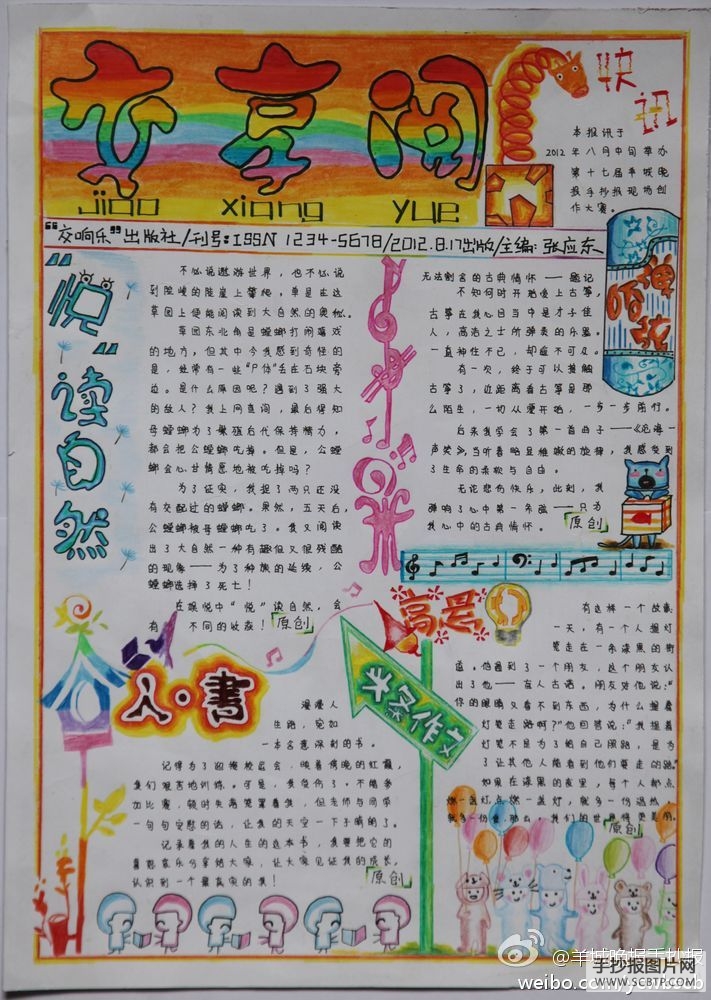 交享阅
快讯
Jiao xiang yue
本报讯于
2012年八月中旬举办
第十七届羊城晚
报手抄报现场创
作大赛。
“交响乐”出版社/刊号:ISSN 1234-5678/2012.8.17出版/主编:张应东
“悦”读自然
不必说遨游世界，也不必说
到险峻的陡崖上攀爬，单是在这
草园上便能阅读到大自然的奥秘。
草园东北角是螳螂打闹嬉戏
的地方，但其中令我感到奇怪的
是，她带有一些“尸体”丢在石块旁
边。是什么原因呢？遇到了强大
的敌人？我上网查阅，最后得知
母螳螂为了繁殖后代保养精力，
都会把公螳螂吃掉。但是，公螳
螂会心甘情愿地被吃掉吗？
为了证实，我捉了两只还没
有交配过的螳螂。果然，五天后，
公螳螂被母螳螂吃了。我又阅读
出了大自然一种有趣但又很残酷
的现象——为了种族的延续，公
螳螂选择了死亡！
在娱悦中“悦”读自然，会
有不同的收获！
原创
无法割舍的古典情怀——题记
不知何时开始爱上古筝，
古筝在我心目当中是才子佳
人，高洁之士所弹奏的乐器。
一直神往不已，却遥不可及。
有一次，终于可以接触
古筝了，近距离看古筝是那
么陌生，一切从爱开始，一步一步前行。
后来我学会了第一首曲子——《沧海一
声笑》，当听着略显稚嫩的旋律，我感受到
了生命的柔软与自由。
无论悲伤快乐，此刻，我
弹响了心中第一条弦——只为
我心中的古典情怀。
原创
人·書
漫漫人
生路，宛如
一本名意深刻的书。
记得为了迎接校运会，映着傍晚的红霞，
我们艰苦地训练。可是，我负伤了，不能参
加比赛，顿时失落笼罩着我，但老师与同学
一句句安慰的话，让我的天空一下子晴朗了。
记录着我的人生的这本书，我要把它的
喜怒哀乐分享给大家，让大家见证我的成长，
认识到一个最真实的我！
原创
头条作文
有这样一个故事:
一天，有一个人提灯
笼走在一条漆黑的街
道。他遇到了一个朋友，这个朋友认
出了他——盲人古诺。朋友对他说:“
你的眼睛又看不到东西，为什么提着
灯笼走路啊？”他回答说:“我提着
灯笼不是为了给自己照路，是为
了让其他人能看到他们要走的路。”
如果在漆黑的夜里，每个人都点
燃一盏灯，点燃一盏灯，就多一份温热，
原创
@羊城晚报手抄报
weibo.com/ycwbscb
手抄报图片网
WWW.SCBTP.COM